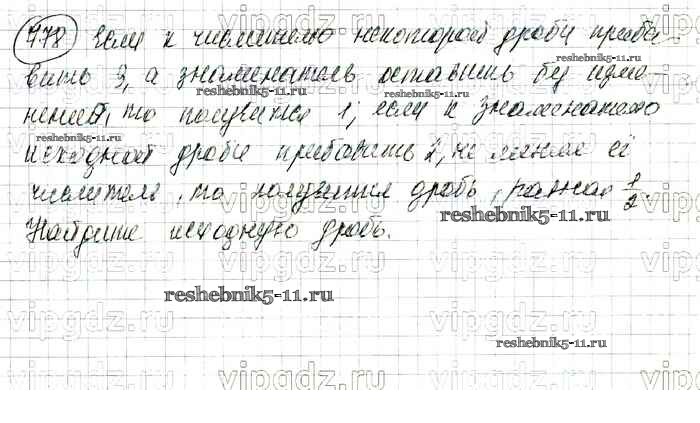 778 Если к числителю некоторой дроби приба-
вить 3, а знаменатель оставить без изме-
нений, то получится 1; если к знаменателю
исходной дроби прибавить 2, не меняя её
числитель, то получится дробь, равная 1/2.
Найдите исходную дробь.
vipgdz.ru
reshebnik5-11.ru
reshebnik5-11.ru
reshebnik5-11.ru
reshebnik5-11.ru
vipgdz.ru vipgdz.ru vipgdz.ru
reshebnik5-11.ru
vipgdz.ru vipgdz.ru vipgdz.ru
reshebnik5-11.ru
vipgdz.ru vipgdz.ru vipgdz.ru